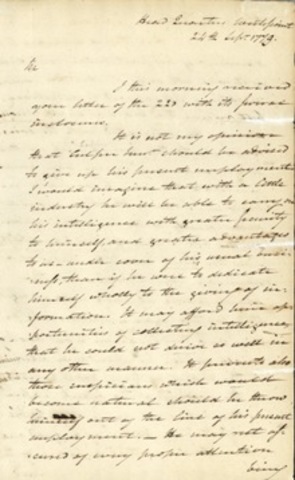 Head Quarters West point
24th Sept. 1779.
Sir
I this morning received
your letter of the 22d with its several
inclosures.
It is not my opinion
that Culper junr. should be advised
to give up his present employment.
I would imagine that with a little
industry he will be able to carry on
his intelligence with greater security
to himself and greater advantages
to us - under cover of his usual busi-
ness, than if he were to dedicate
himself wholly to the giving of in-
formation. It may afford him op-
portunities of collecting intelligence,
that he could not derive so well in
any other manner. It prevents also
those suspicions which would
become natural should he throw
himself out of the line of his present
employment. — He may rest as-
sured of every proper attention
being